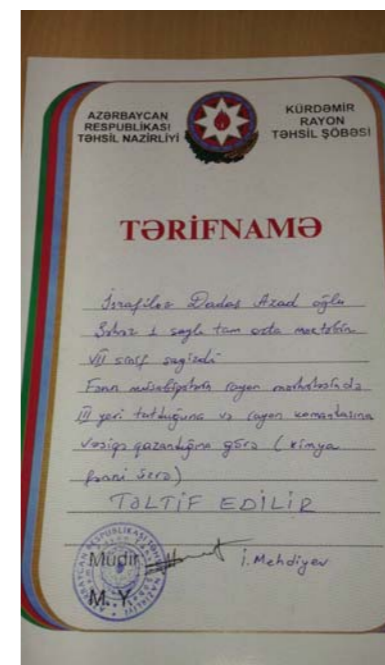 AZƏRBAYCAN
RESPUBLİKASI
TƏHSİL NAZİRLİYİ
KÜRDƏMİR
RAYON
TƏHSİL ŞÖBƏSİ
TƏRİFNAMƏ
İsrafilov Dadaş Azad oğlu
Şəhər 1 saylı tam orta məktəbin
VII sinif şagirdi
Fənn müsabiqəsinin rayon mərhələsində
III yeri tutduğuna və rayon komandasına
vəsiqə qazandığına görə (kimya
fənni üzrə)
TƏLTİF EDİLİR
Müdir
İ.Mehdiyev
M.Y.